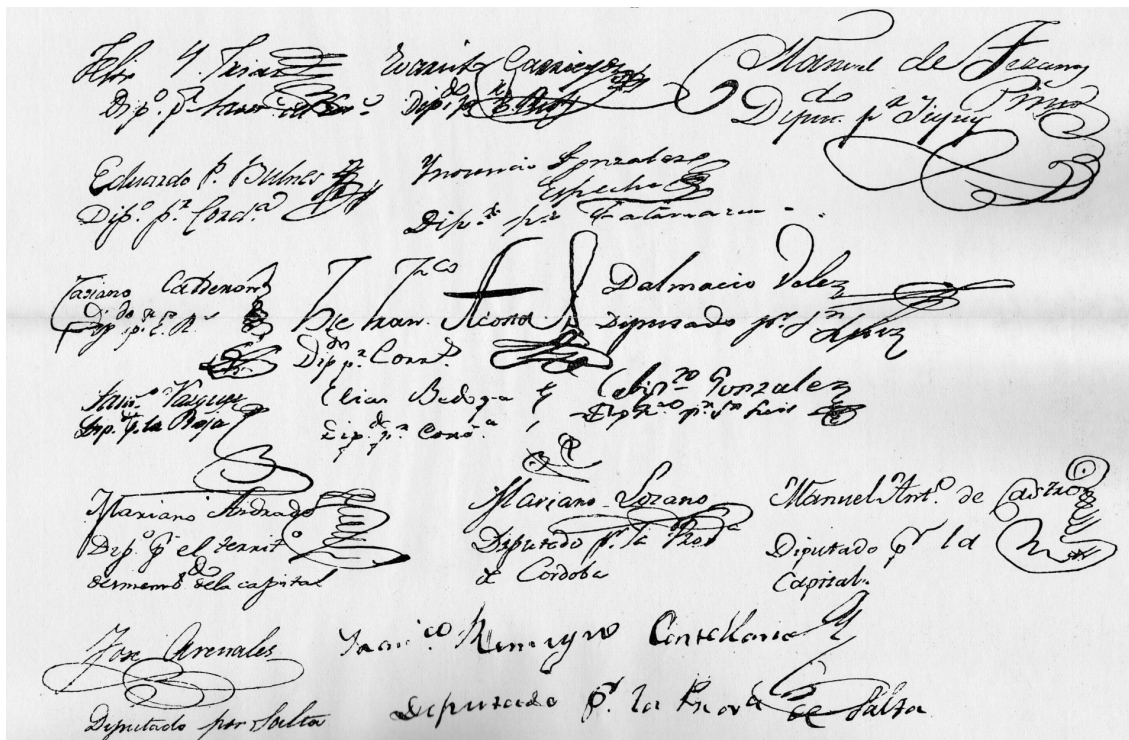 Felix Y. Frias
Dip.º p.r Sant.
Evaristo Carriego
Dip.do
Manuel de Tezanos
Pinto
Dipu.do p.r Jujuy
Eduardo P. Bulnes
Dip.º p.r Cord.a
Ynocencio Gonzalez
Espeche
Dip.do p.r Catamarca
Casiano Calderon
Dip.do p.r E. R.s
J. Fr.co
Acosta
Dip.do p.r Corr.s
Dalmacio Velez
Diputado p.r S.n
Luis
Sant.º Vazquez
Dip.do p.r la Rioja
Elias Bedoya
Dip.do p.r Cord.a
Calis.to Gonzalez
Dip.do p.r S.n Luis
Mariano Andrade
Dip.º p.r el territ.º
desmemb.do dela capital
Mariano Lozano
Diputado p.r la Prov.a
de Cordoba
Manuel Ant.º de Castro
Diputado p.r la
Capital.
José Arenales
Diputado por Salta
Fran.co Remigyo Castellanos
Deputado p.r la Prov.a de Salta